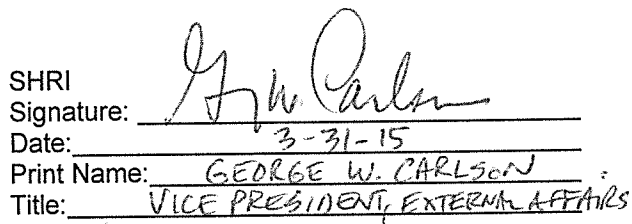 SHRI
Signature: Gg W. Carlson
Date: 3-31-15
Print Name: GEORGE W. CARLSON
Title: VICE PRESIDENT, EXTERNAL AFFAIRS